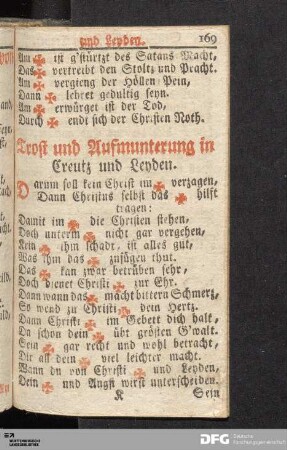 und Leyden. 169
Am ✠ ist g'stürtzt des Satans Macht,
Das ✠ vertreibt den Stoltz und Pracht.
Am ✠ vergieng der Höllen Pein,
Dann ✠ lehret gedultig seyn.
Am ✠ erwürget ist der Tod,
Durch ✠ endt sich der Christen Noth.
Trost und Aufmunterung in
Creutz und Leyden.
Darum soll kein Christ im ✠ verzagen,
Dann Christus selbst das ✠ hilft
tragen:
Damit im ✠ die Christen stehen,
Doch unterm ✠ nicht gar vergehen,
Kein ✠ ihm schadt, ist alles gut,
Was ihm das ✠ zufügen thut.
Das ✠ kan zwar betrüben sehr,
Doch dienet Christi ✠ zur Ehr.
Dann wann das ✠ macht bittern Schmertz,
So wend zu Christi ✠ dein Hertz.
Dann Christi ✠ im Gebett dich halt,
Da schon dein ✠ übt grösten G'walt.
Sein ✠ gar recht und wohl betracht,
Dir all dein ✠ viel leichter macht.
Wann du von Christi ✠ und Leyden,
Dein ✠ und Angst wirst unterscheiden.
K Sein
DFG